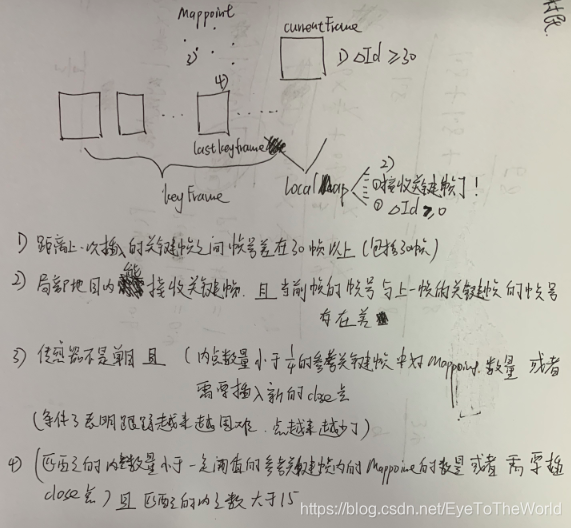 Mappoint
currentFrame
1) ΔId ≥30
3)
4)
lastkeyframe
keyframe
Local Map
2)
①接收关键帧了!
② ΔId ≥0
1) 距离上一次插入的关键帧之间帧号差在30帧以上 (包括30帧)
2) 局部地图内能接收关键帧, 且当前帧的帧号与上一帧的关键帧的帧号
存在差
3) 传感器不是单目 且 (内点数量小于1/4的参考关键帧中对Mappoint数量 或者
需要插入新的close点
(条件3表明跟踪越来越困难, 点越来越少了)
4) (匹配的内点数量小于一定阈值的参考关键帧内的Mappoint的数量或者需要插
close点) 且 匹配的内点数大于15
https://blog.csdn.net/EyeToTheWorld